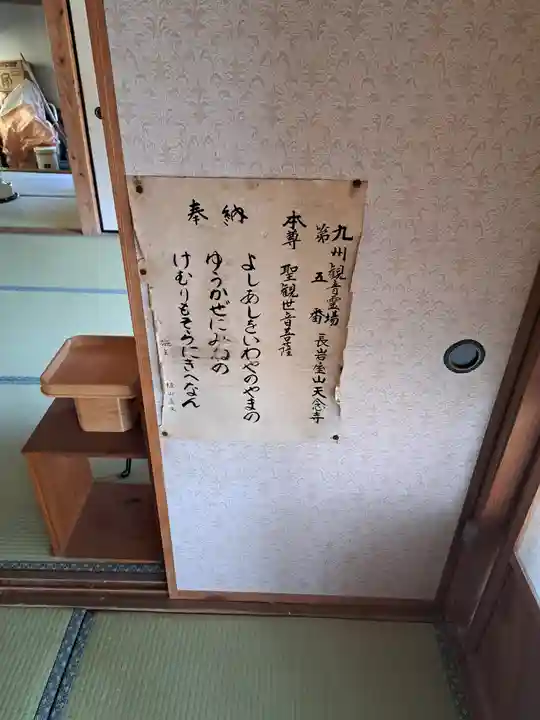 九州観音霊場
第五番 長岩屋山天念寺
本尊 聖観世音菩薩
奉納
よしあしをいわやのやまの
ゆうかぜにみねの
けむりもそらにきへなん